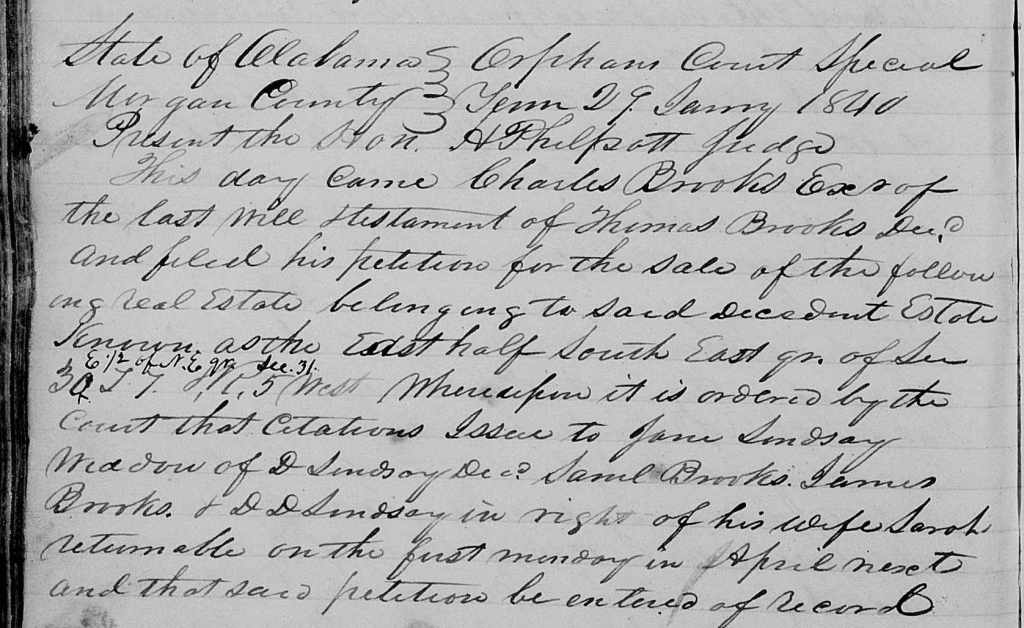 State of Alabama } Orphans Court Special
Morgan County } Term 29. Janry 1840
Present the Hon. A Phelpott Judge
This day Came Charles Brooks Exr of
the last Will & testament of Thomas Brooks Decd
and filed his petition for the sale of the follow
ing real Estate belonging to said decedent Estate
Known as the East half South East qr. of Sec
E 1/2 of N. E qr. Sec. 31.
30 T. 7. 5 West Whereupon it is ordered by the
Court that Citations Issue to Jane Lindsay
Widow of D Lindsay Decd Saml Brooks. James
Brooks. & D D Lindsay in right of his wife Sarah
returnable on the first monday in April next
and that said petition be entered of record